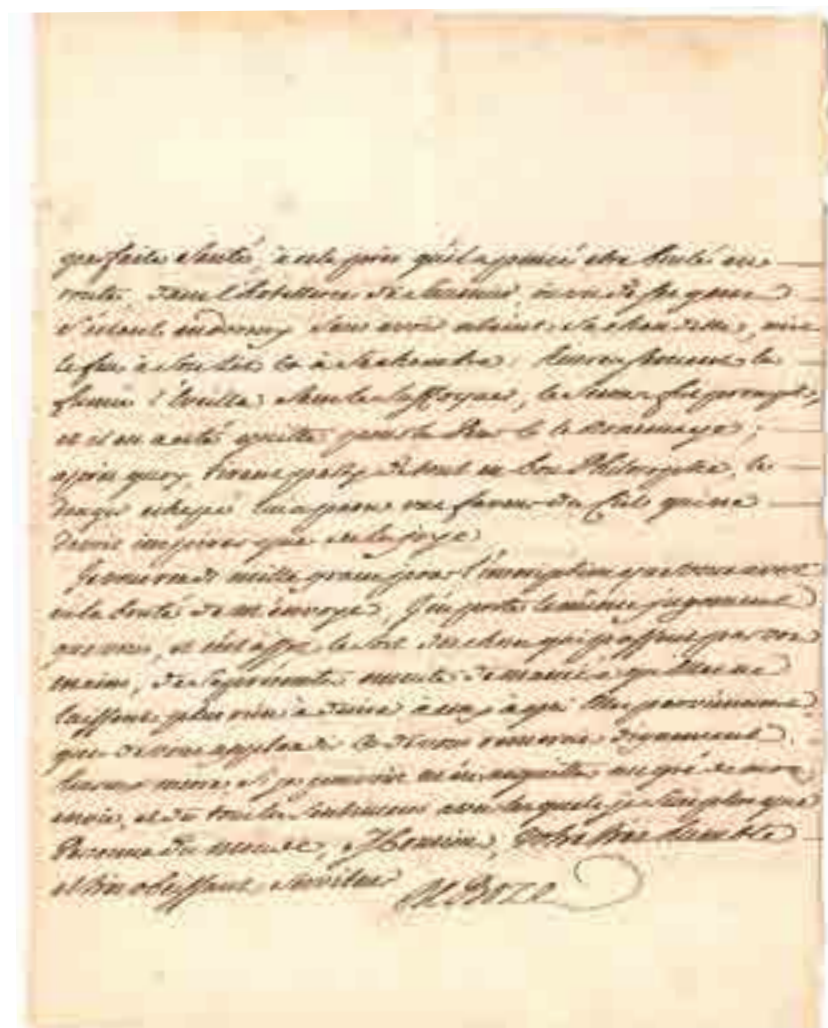 parfaite santé, à cela près qu'il a pensé être brulé en
route, dans l'hotellerie de
s'étant endormy sans avoir éteint sa chandelle, mit
le feu à son lit et à sa chambre; heureusement la
fumée l'éveilla sans le suffoquer, le secours fut prompt,
et il en a été quitte pour la peur et le dommage;
après quoy, tirant party de tout en bon Philosophe, le
danger echapé luy a paru une faveur du Ciel qui ne
devoit inspirer que de la joye.
Je vous rends mille graces pour l'inscription que vous avez
eu la bonté de m'envoyer, J'en porte le même jugement
que vous, et c'est assez le sort des choses qui passent par vos
mains, d'être de maniere qu'elles ne
laissent plus rien à dire à ceux à qui elles parviennent
que de vous applaudir et de vous remercier dignement.
heureux si je pouvois m'en acquitter au gré de mon
envie, et de tous les sentimens avec lesquels je suis plus que
Personne du monde, Monsieur, Votre tres humble
et tres obeissant serviteur
De Boze